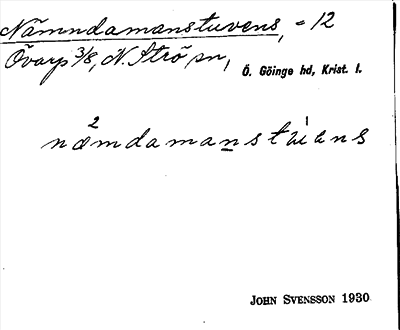 Nämndamanstuvens, = 12
Övarp 3/8, N. Strö sn,
Ö. Göinge hd, Krist. l.
JOHN SVENSSON 1930